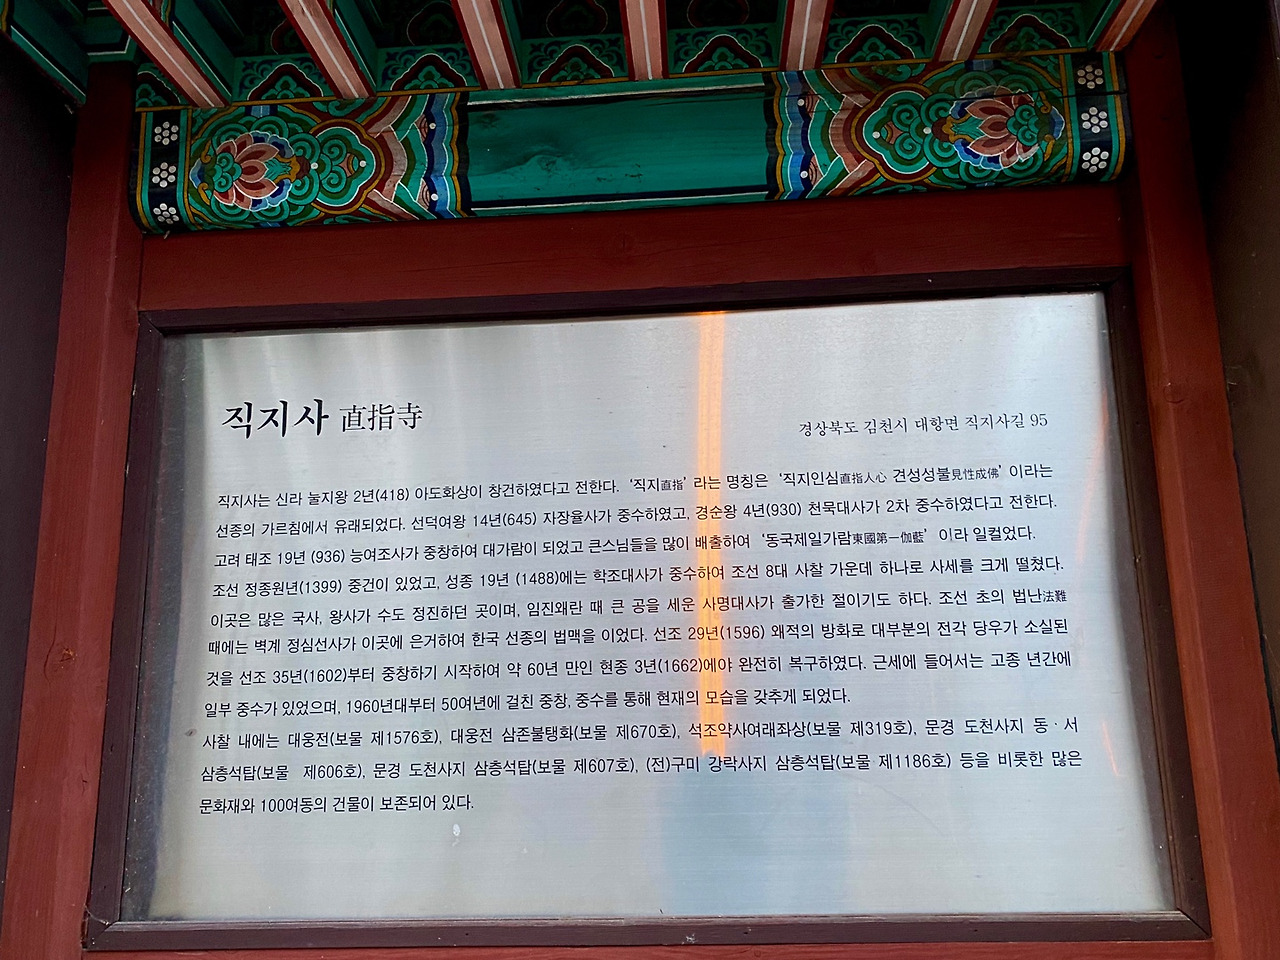 직지사 直指寺
경상북도 김천시 대항면 직지사길 95
직지사는 신라 눌지왕 2년(418) 아도화상이 창건하였다고 전한다. ‘직지直指’ 라는 명칭은 ‘직지인심直指人心 견성성불見性成佛’ 이라는
선종의 가르침에서 유래되었다. 선덕여왕 14년(645) 자장율사가 중수하였고, 경순왕 4년(930) 천묵대사가 2차 중수하였다고 전한다.
고려 태조 19년 (936) 능여조사가 중창하여 대가람이 되었고 큰스님들을 많이 배출하여 ‘동국제일가람東國第一伽藍’ 이라 일컬었다.
조선 정종원년(1399) 중건이 있었고, 성종 19년 (1488)에는 학조대사가 중수하여 조선 8대 사찰 가운데 하나로 사세를 크게 떨쳤다.
이곳은 많은 국사, 왕사가 수도 정진하던 곳이며, 임진왜란 때 큰 공을 세운 사명대사가 출가한 절이기도 하다. 조선 초의 법난法難
때에는 벽계 정심선사가 이곳에 은거하여 한국 선종의 법맥을 이었다. 선조 29년(1596) 왜적의 방화로 대부분의 전각 당우가 소실된
것을 선조 35년(1602)부터 중창하기 시작하여 약 60년 만인 현종 3년(1662)에야 완전히 복구하였다. 근세에 들어서는 고종 년간에
일부 중수가 있었으며, 1960년대부터 50여년에 걸친 중창, 중수를 통해 현재의 모습을 갖추게 되었다.
사찰 내에는 대웅전(보물 제1576호), 대웅전 삼존불탱화(보물 제670호), 석조약사여래좌상(보물 제319호), 문경 도천사지 동·서
삼층석탑(보물 제606호), 문경 도천사지 삼층석탑(보물 제607호), (전)구미 강락사지 삼층석탑(보물 제1186호) 등을 비롯한 많은
문화재와 100여동의 건물이 보존되어 있다.